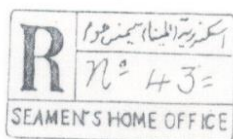 اسكندرية المينا سيمنس هوم
R
Nº 43=
SEAMEN'S HOME OFFICE